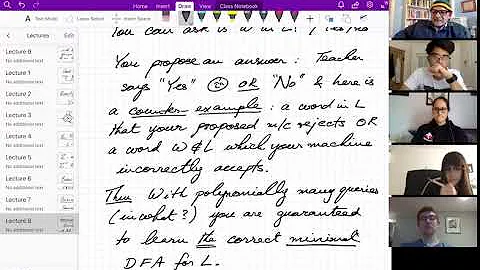 Insert
Draw
View
Class Notebook
Lectures
Lecture 0
No additional text
Lecture 1
No additional text
Lecture 2
No additional text
Lecture 3
No additional text
Lecture 4
No additional text
Lecture 5
No additional text
Lecture 6
No additional text
Lecture 7
No additional text
Lecture 8
No additional text
You can ask is w in L? Yes/No
You propose an answer: Teacher
says "Yes" OR "No" & here is
a counter-example: a word in L
that your proposed m/c rejects OR
a word w ∉ L which your machine
incorrectly accepts.
Thm With polynomially many queries
(in what?) you are guaranteed
to learn the correct minimal
DFA for L.